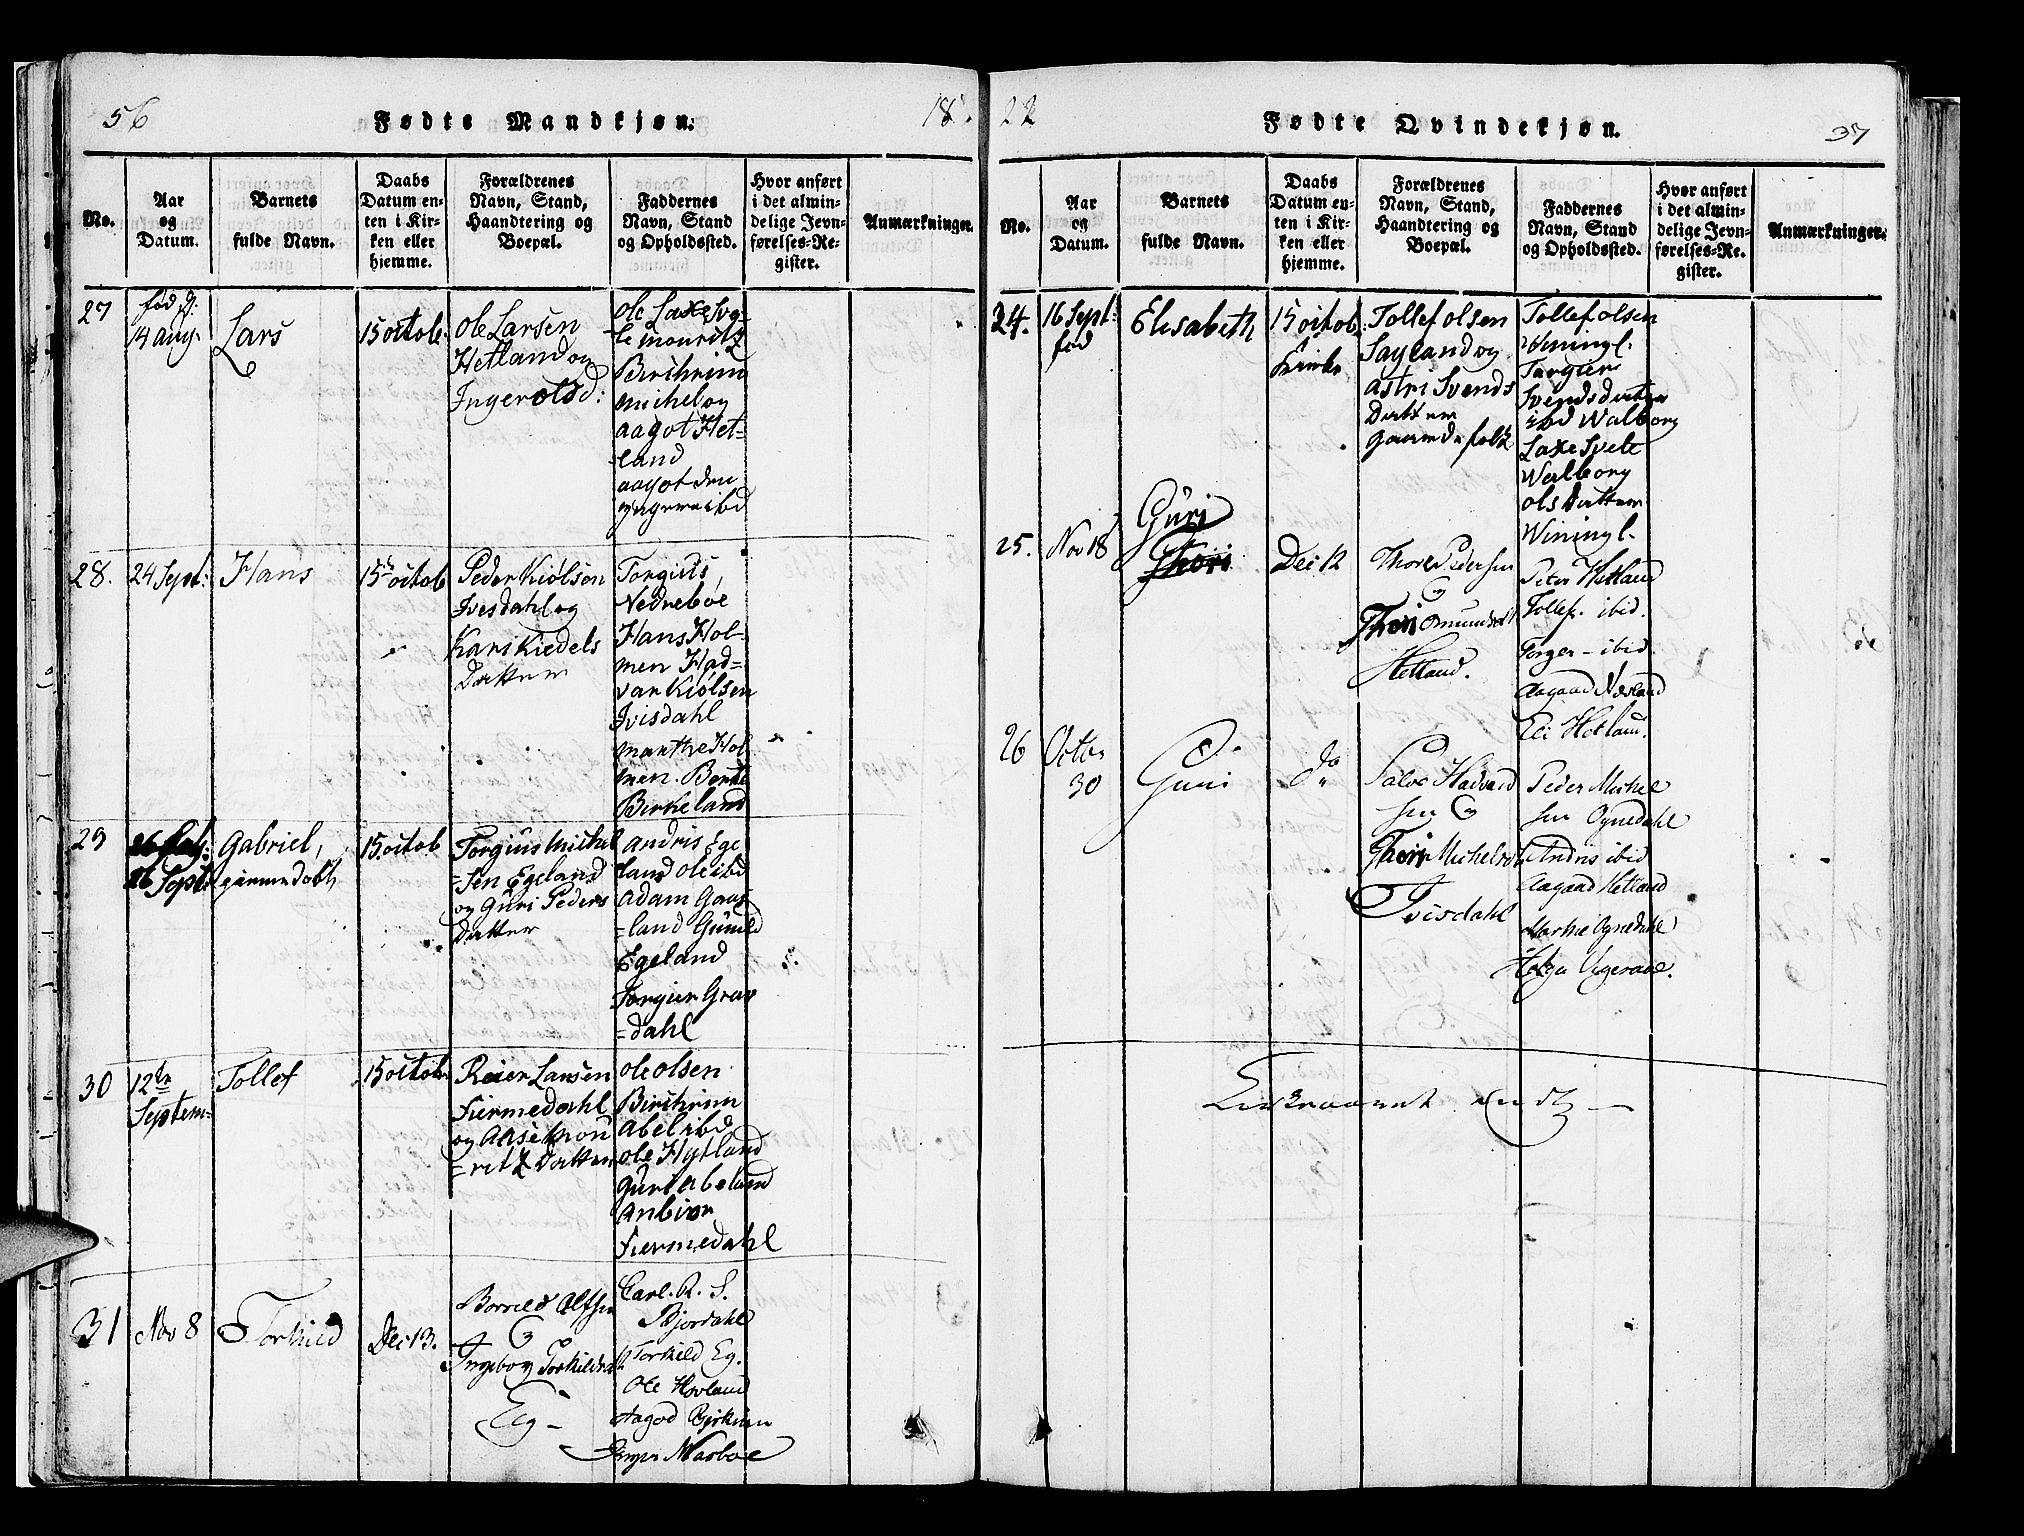 56
Fødte Mandkjøn.
18
No.
Aar
og
Datum.
Barnets
fulde Navn.
Daabs
Datum en-
ten i Kir-
ken eller
hjemme.
Forældrenes
Navn, Stand,
Haandtering og
Boepæl.
Faddernes
Navn, Stand
og Opholdssted.
Hvor anført
i det almin-
delige Jevn-
førelses-Re-
gister.
Anmærkninger.
27
fød d:
14 aug.
Lars
15 octob.
Ole Larsen
Hetland og
Inger olsd:
ole Laxesve-
te mouritz
Birchrim
michel og
aagot Het-
land
aagot den
yngere ibd
28.
24 Sept:
Hans
15 octob
Peder Kiølson
Ivesdahl og
Kari Kiedels
Datter
Torgiils
Nedreboe
Hans Hol-
men Had-
var Kiølsen
Ivisdahl
marthe Hol
men. Berte
Birkeland
29
26 Sept:
Gabriel,
hiemmedøbt
15 octob
Torgius Michel
=sen Egeland
og Guri Peders
datter
andris Ege
land ole ibd
adam Gaas
=land Gunild
Egeland
Torgier Grav
=dahl
30
12te
Septem=
Tollef
15 octob.
Reier Larsen
Fiermedahl
og Aase mou
=ritz Datter
ole olsen
Birchrim
abel ibd
ole Hytland
guri abeland
anbiør
Fiermedahl
31
Nov 8
Torkild
Dec 13.
Borrild Alfsen
&
Ingebor Torkildsd
Eeg –
Carl. R. S.
Bjordahl
Torkild Eg.
Ole Hovland
Aagod Birkrem
Inger Masboe
22
Fødte Qvindekjøn.
37
No.
Aar
og
Datum.
Barnets
fulde Navn.
Daabs
Datum en-
ten i Kir-
ken eller
hjemme.
Forældrenes
Navn, Stand,
Haandtering og
Boepæl.
Faddernes
Navn, Stand
og Opholdssted.
Hvor anført
i det almin-
delige Jevn-
førelses-Re-
gister.
Anmærkninger.
24.
16 Sept:
fød
Elisabeth
15 octob:
Kirke
Tollef olsen
Sayland og
astri Svends
Datter
gaardsfolk
Tollef olsen
Winingl.
Torgier
Svendsdatter
ibd Walborg
Laxesvele
Walborg
olsdatter
Winingl.
25.
Nov 18
Guri
Thori
Dec 12
Thore Pedersen
&
Thori Omundsdt
Hetland.
Peter Hetland
Tollef. ibid.
Torger – ibid.
Aagaad Næsland
Eli Hetland.
26
Octbr
30
Guri
do
Salve Hadvard
sen &
Thori Michelsdt
Ivisdahl
Peder Michel
sen Ognedahl
Andris ibid
Aagaad Hetland
Marthe Ognedahl
Helga Vigesaae.
Kirkeaaret endt –